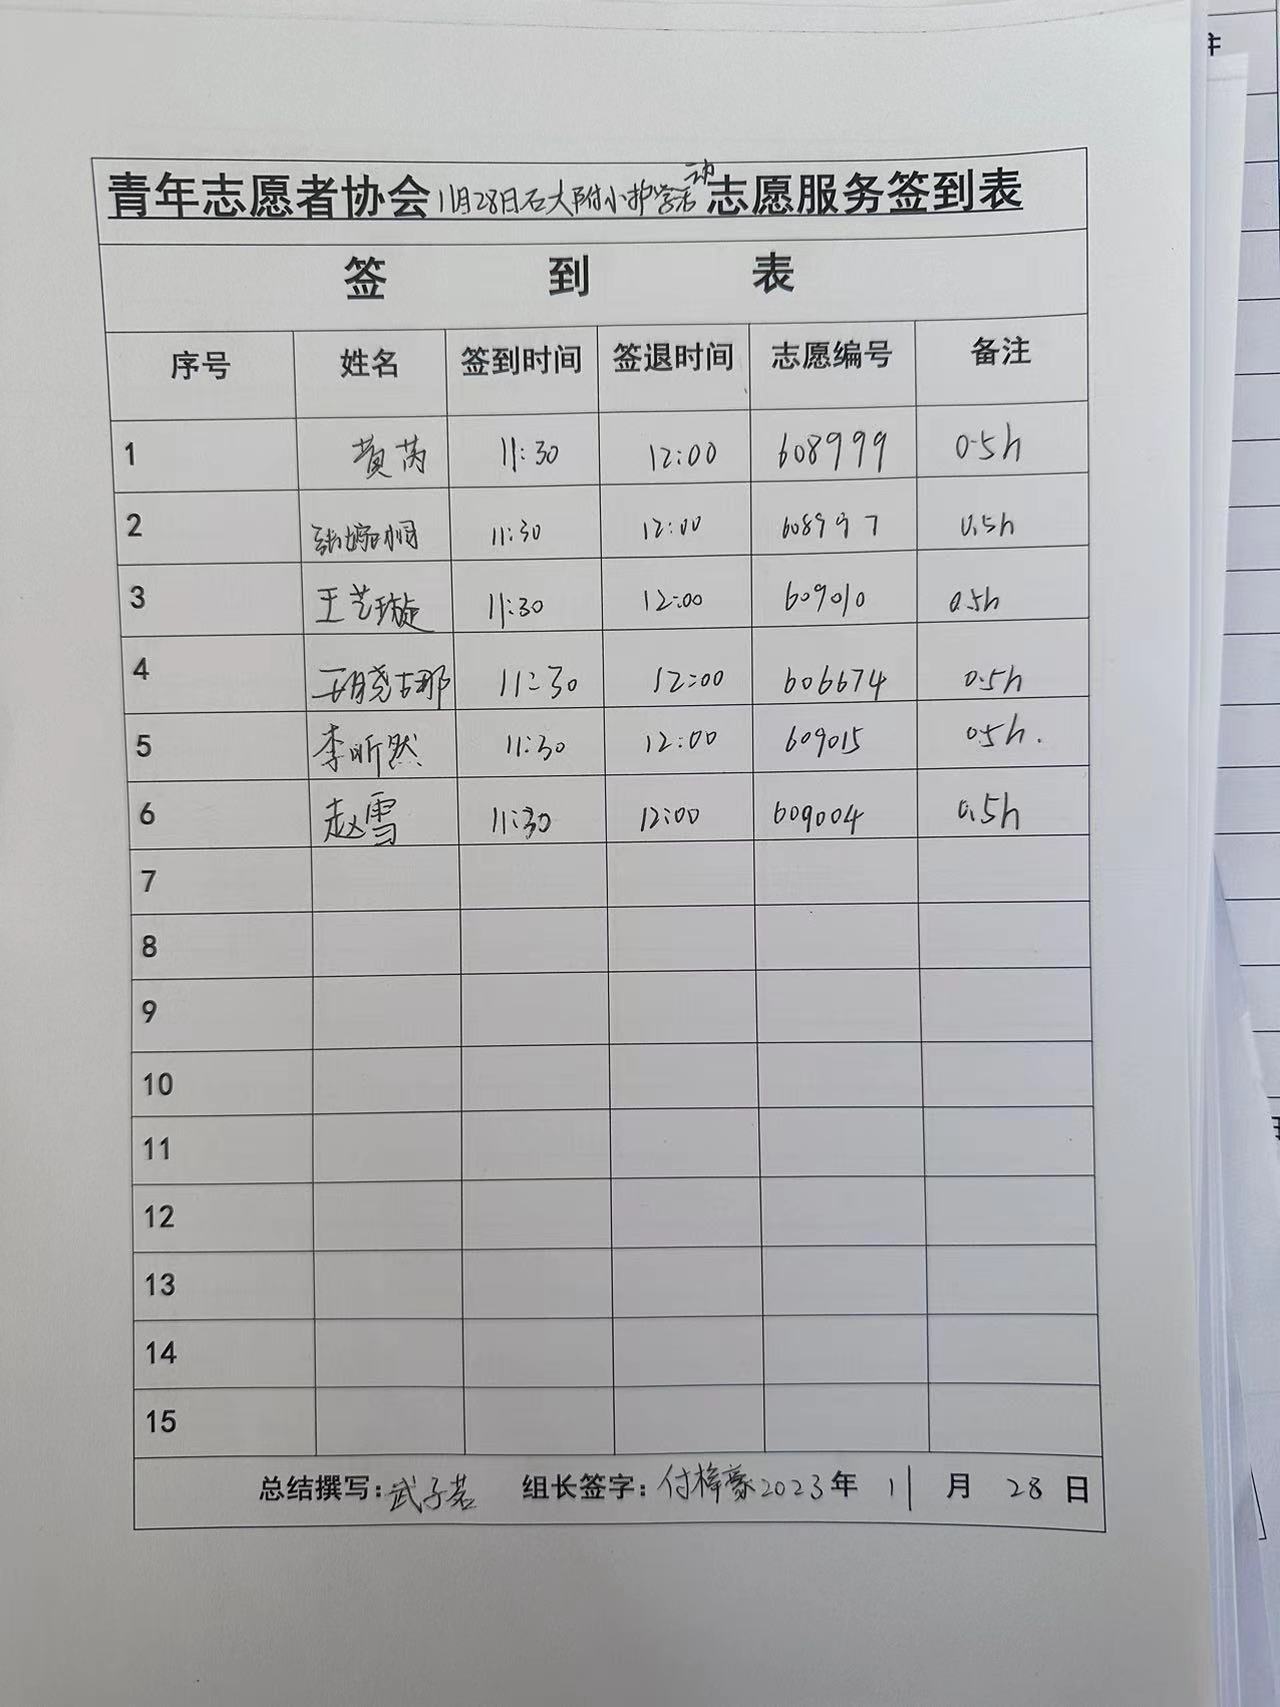 青年志愿者协会11月28日石大附小护学活动志愿服务签到表
签 到 表
序号 姓名 签到时间 签退时间 志愿编号 备注
1 黄芮 11:30 12:00 608999 0.5h
2 11:30 12:00 608997 0.5h
3 王艺璇 11:30 12:00 609010 0.5h
4 11:30 12:00 606674 0.5h
5 李昕然 11:30 12:00 609015 0.5h.
6 赵雪 11:30 12:00 609004 0.5h
7
8
9
10
11
12
13
14
15
总结撰写:武子茗 组长签字:付梓豪2023年 11月 28日